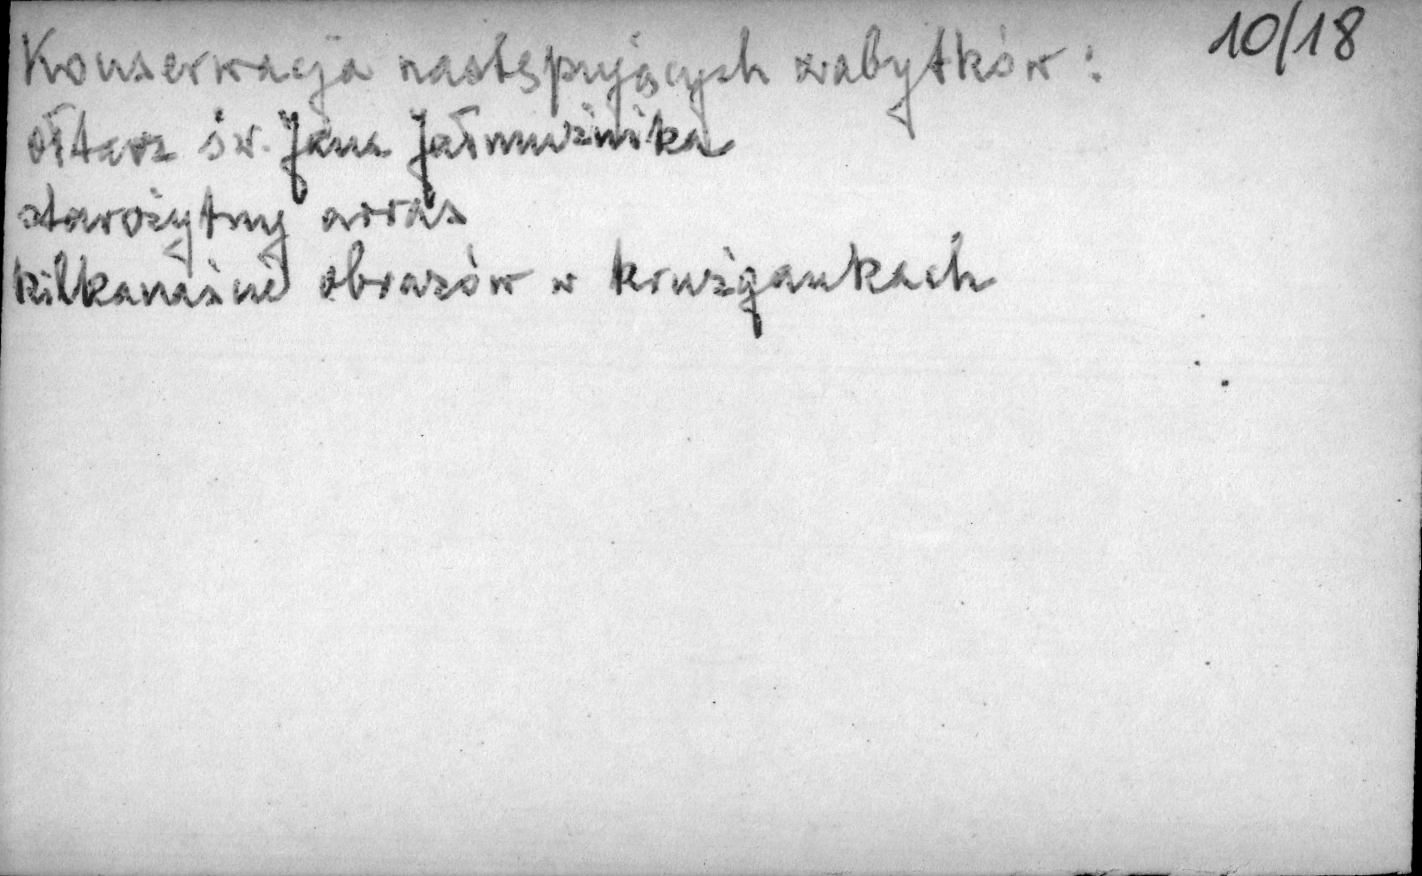 10/18
Konserwacja następujących zabytków:
ołtarz św. Jana Jałmużnika
starożytny arras
kilkanaście obrazów w krużgankach